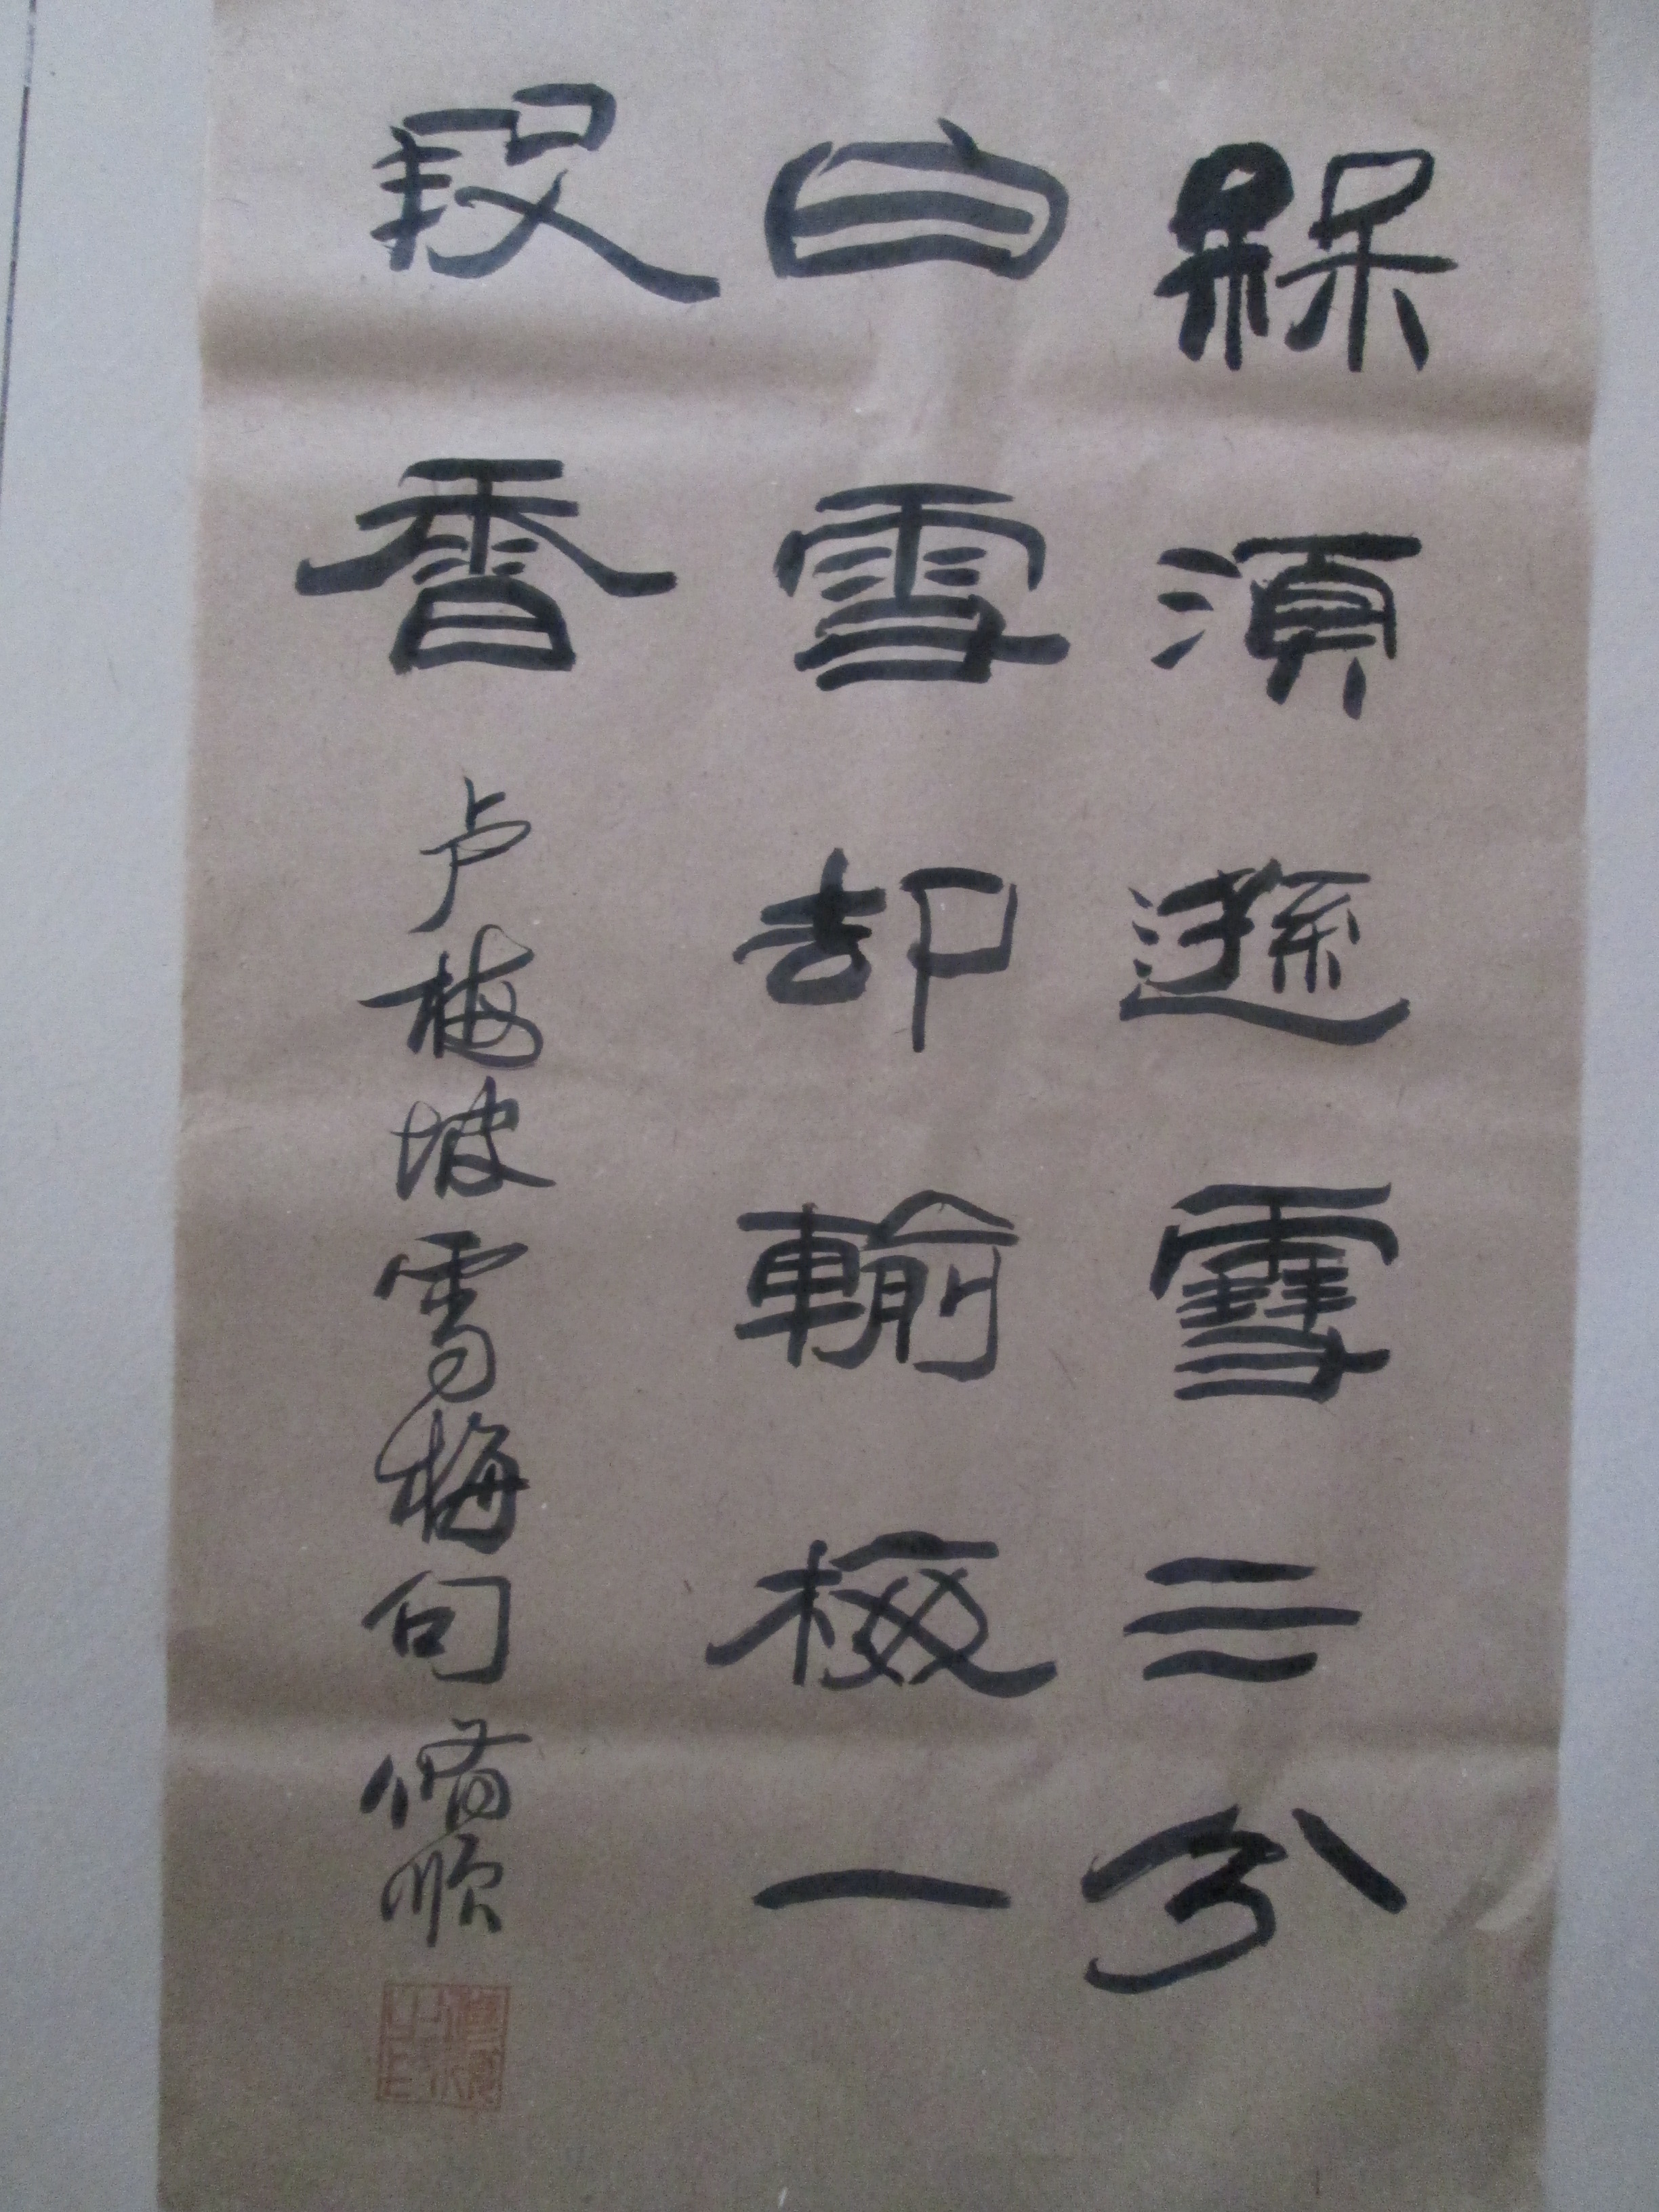 槑須遜雪三分
白雪却輸梅一
段香 卢梅坡雪梅句 脩顺